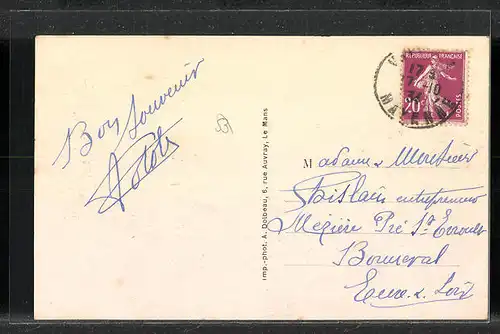 Bon Souvenir
Imp.-phot. A. Dolbeau, 6, rue Auvray, Le Mans
REPUBLIQUE FRANÇAISE
20c
POSTES
MAYENNE
Madame & Monsieur
Ghislain entrepreneur
Mézière Pré St
Bonneval
Eure & Loir